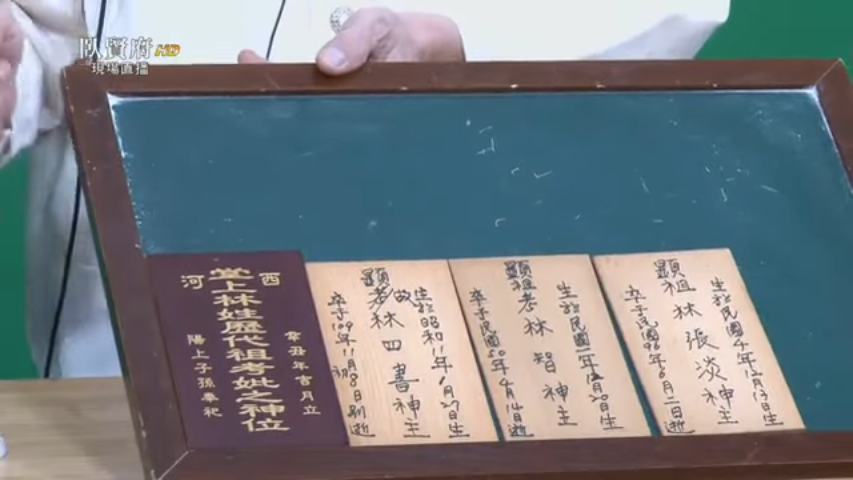 臥賢府HD
現場直播
西河
辛丑年吉月立
堂上林姓歷代祖考妣之神位
陽上子孫奉祀
生於昭和11年1月27日生
顯考林四書神主
故
卒于109年11月8日
生於民國一年12月20日生
顯祖考林智神主
卒于民國50年4月14日逝
生於民國4年12月13日生
顯祖林張淡神主
卒于民國96年6月2日逝